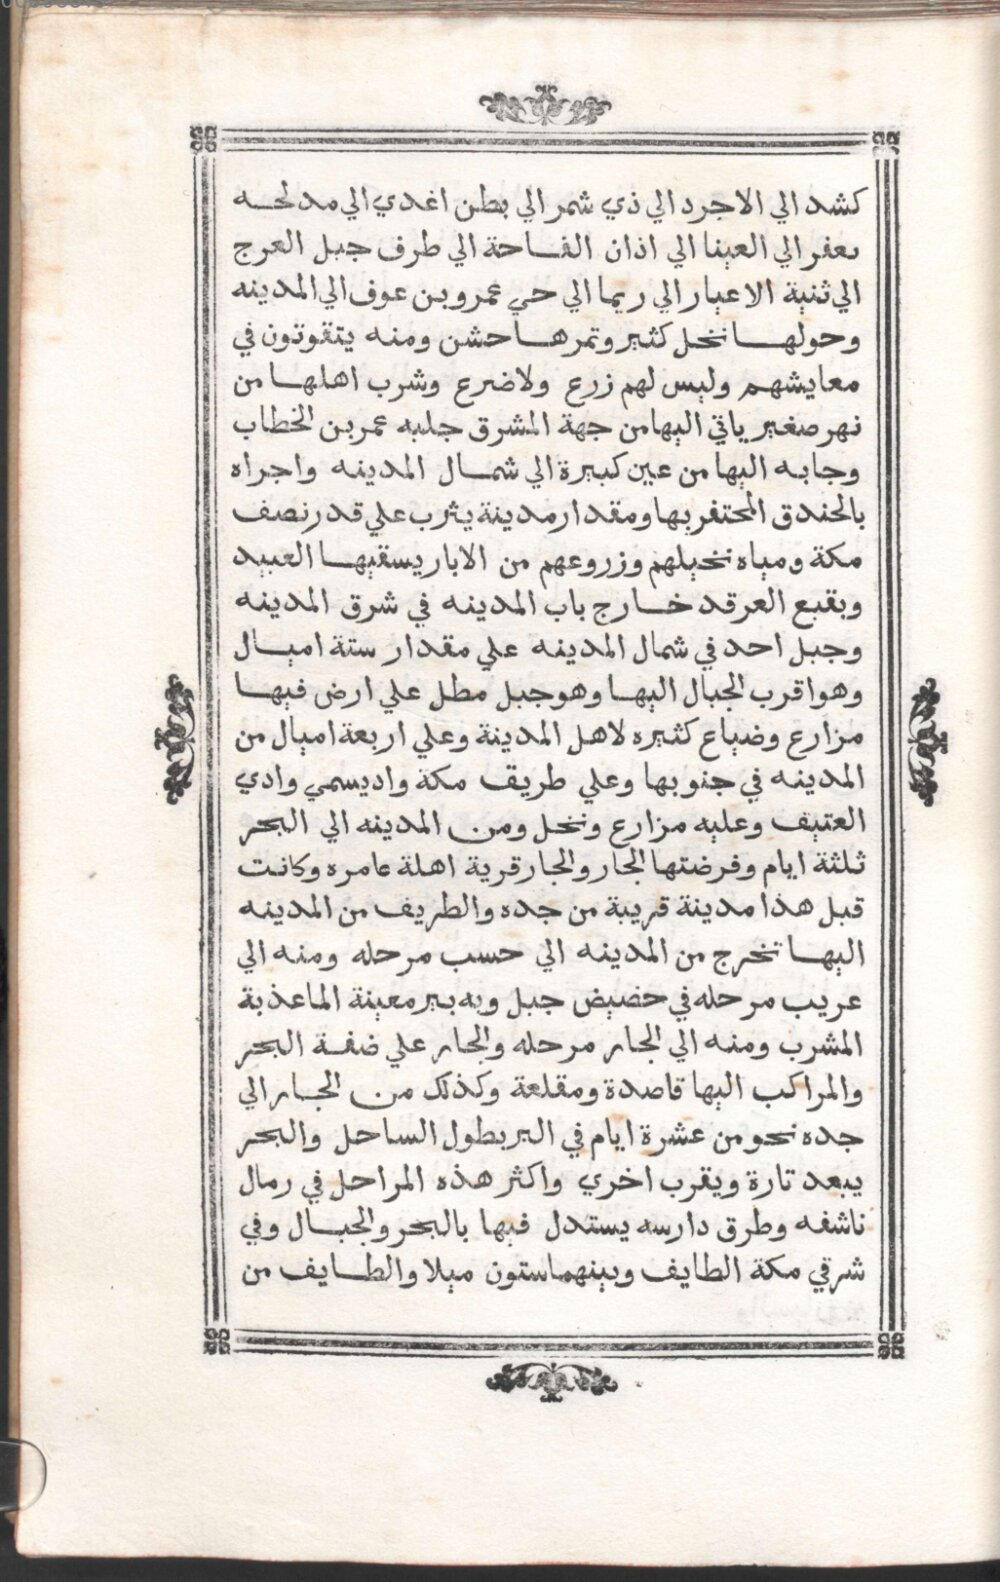 كشد الي الاجرد الي ذي شمر الي بطن اغدي الي مدلحه
ىعفر الي العينا الي اذان الفاحة الي طرف جبل العرج
الي ثنية الاعيار الي ريما الي حي عمرو بن عوف الي المدينه
وحولها نخل كثير وتمرها حشن ومنه يتقوتون في
معايشهم وليس لهم زرع ولا ضرع وشرب اهلها من
نهر صغير ياتي اليها من جهة المشرق جلبه عمر بن الخطاب
وجابه اليها من عين كبيرة الي شمال المدينه واجراه
بالخندق المحتفر بها ومقدار مدينة يثرب علي قدر نصف
مكة ومياه نخيلهم وزروعهم من الابار يسقيها العبيد
وبقيع العرقد خارج باب المدينه في شرق المدينه
وجبل احد في شمال المدينه علي مقدار ستة اميال
وهو اقرب الجبال اليها وهو جبل مطل علي ارض فيها
مزارع وضياع كثيره لاهل المدينة وعلي اربعة اميال من
المدينه في جنوبها وعلي طريق مكة وادي يسمي وادي
العتيق وعليه مزارع ونخل ومن المدينه الي البحر
ثلثة ايام وفرضتها الجار والجار قرية اهلة عامره وكانت
قبل هذا مدينة قريبة من جده والطريق من المدينه
اليها تخرج من المدينه الي حسب مرحله ومنه الي
عريب مرحله في حضيض جبل وبه بير معينة الما عذبة
المشرب ومنه الي الجار مرحله والجار علي ضفة البحر
والمراكب اليها قاصدة ومقلعة وكذلك من الجار الي
جده نحو من عشرة ايام في البر بطول الساحل والبحر
يبعد تارة ويقرب اخري واكثر هذه المراحل في رمال
ناشفه وطرق دارسه يستدل فيها بالبحر والجبال وفي
شرقي مكة الطايف وبينهما ستون ميلا والطايف من